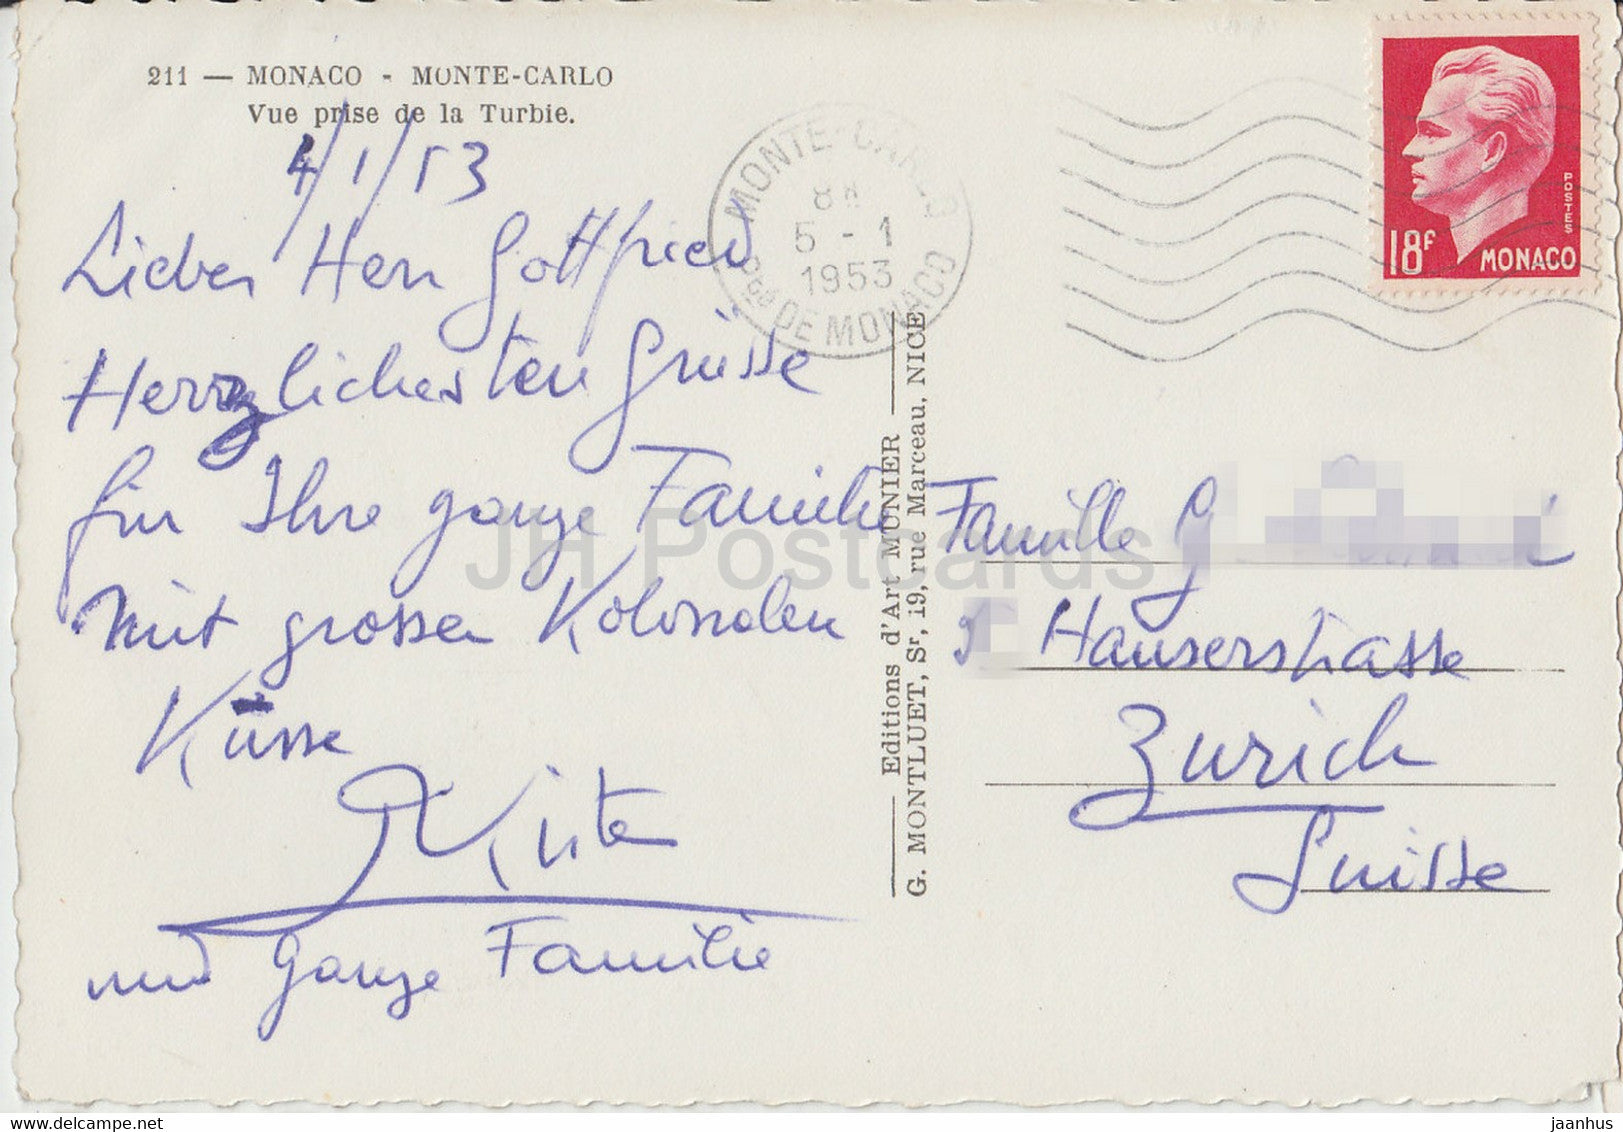 211 — MONACO - MONTE-CARLO
Vue prise de la Turbie.
4/1/53
Lieber Herr Gottfried
Herzlichesten Grüsse
für Ihre ganze Familie
mit grossen Kolossalen
Küsse
und Ganze Familie
MONTE-CARLO
5 - 1
1953
Pté DE MONACO
Editions d'Art MUNIER
G. MONTLUET, Sr, 19, rue Marceau, NICE
POSTES
18F MONACO
Famille G
Hauserstrasse
Zurich
Suisse
JH Postcards
jaanhus